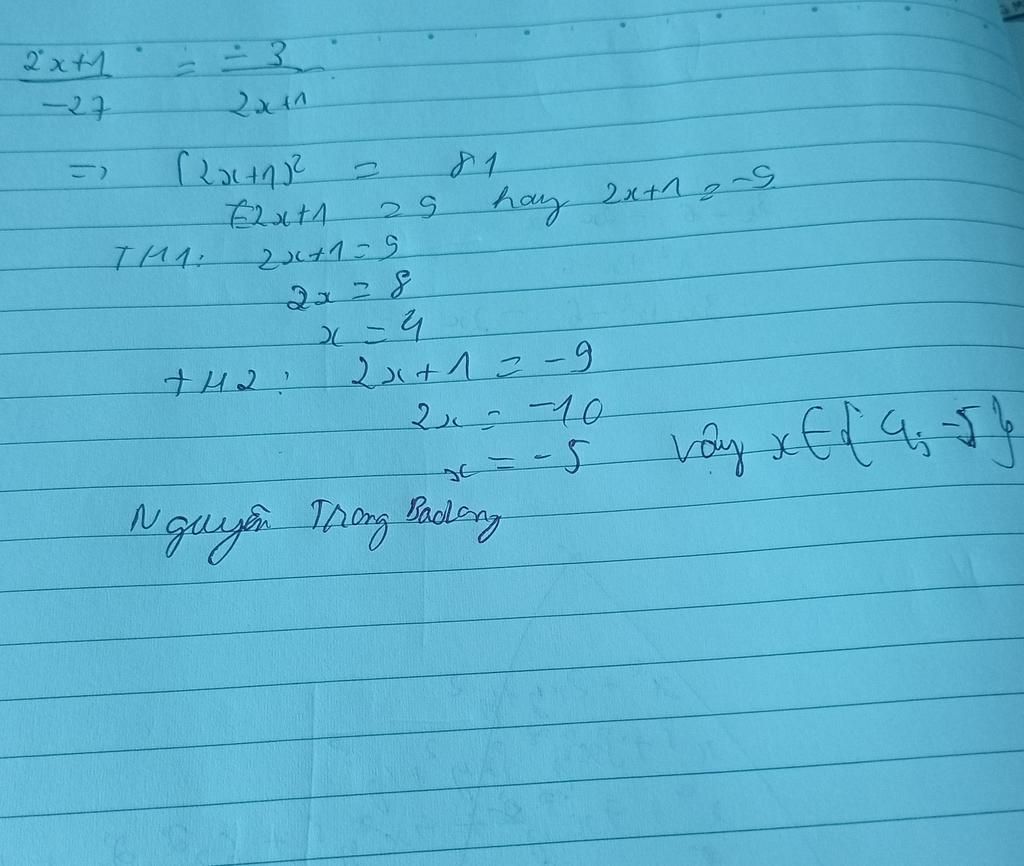 2x+1 / -27 = -3 / 2x+1
=> (2x+1)² = 81
2x+1 = 9 hay 2x+1 = -9
TH1: 2x+1 = 9
2x = 8
x = 4
TH2: 2x+1 = -9
2x = -10
x = -5 Vậy x ∈ { 4; -5 }
Nguyễn Trong